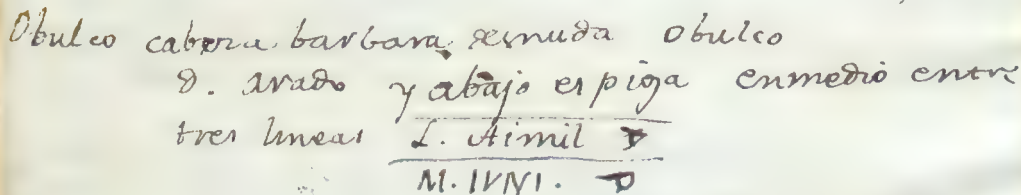 Obulco cabeza barbara desnuda Obulco
d. arado y abajo espiga enmedio entre
tres lineas L. Aimil
M. IVNI.